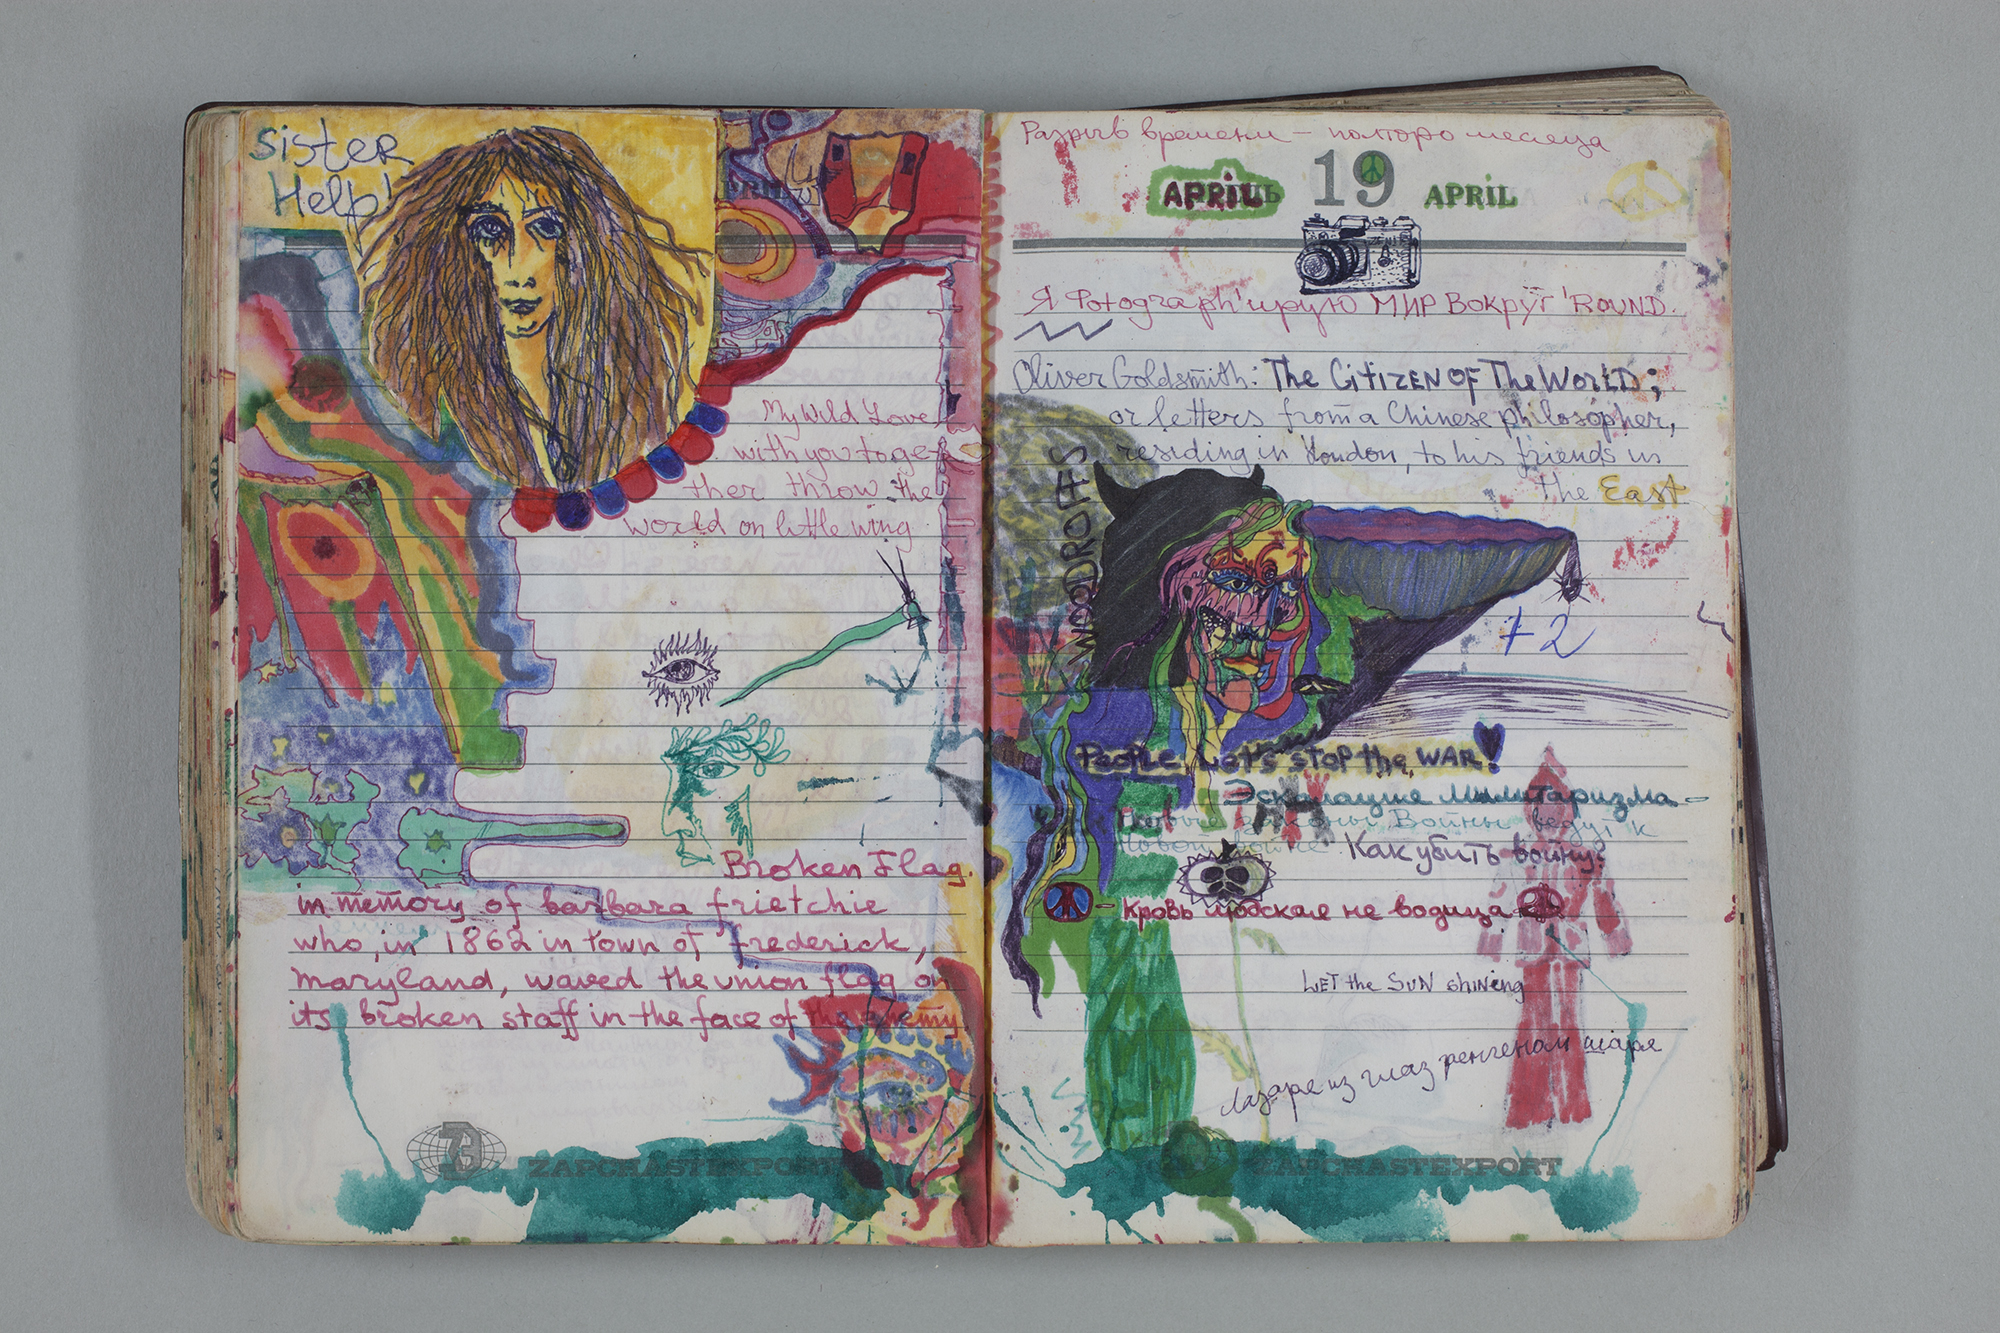 Sister
Help!
My Wild Love
with you toge
ther throw the
World on little wing
Broken Flag.
in memory of barbara frietchie
who, in 1862 in town of frederick,
maryland, waved the union flag on
its broken staff in the face of the enemy.
ZAPCHASTEXPORT
Разрыв времени – полторо месяца
APRIL 19 APRIL
Я Фotograph'ирую МИР ВОКРУГ 'ROUND.
Oliver Goldsmith: The CITIZEN OF The WORLD;
or letters from a Chinese philosopher,
residing in London, to his friends in
the East
WOODROFFS
+2
People, Let's stop the WAR!
Эскалация Милитаризма –
Новые законы Войны ведут к
Новой войне Как убить войну?
– Кровь людская не водица
LET the SUN shining
Лазаре из глаз ренгеном шаря
ZAPCHASTEXPORT